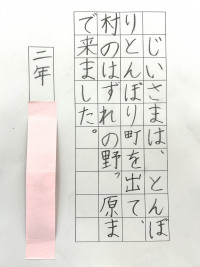 じいさまは、とんぼ
りとんぼり町を出て、
村のはずれの野っ原ま
で来ました。
二年